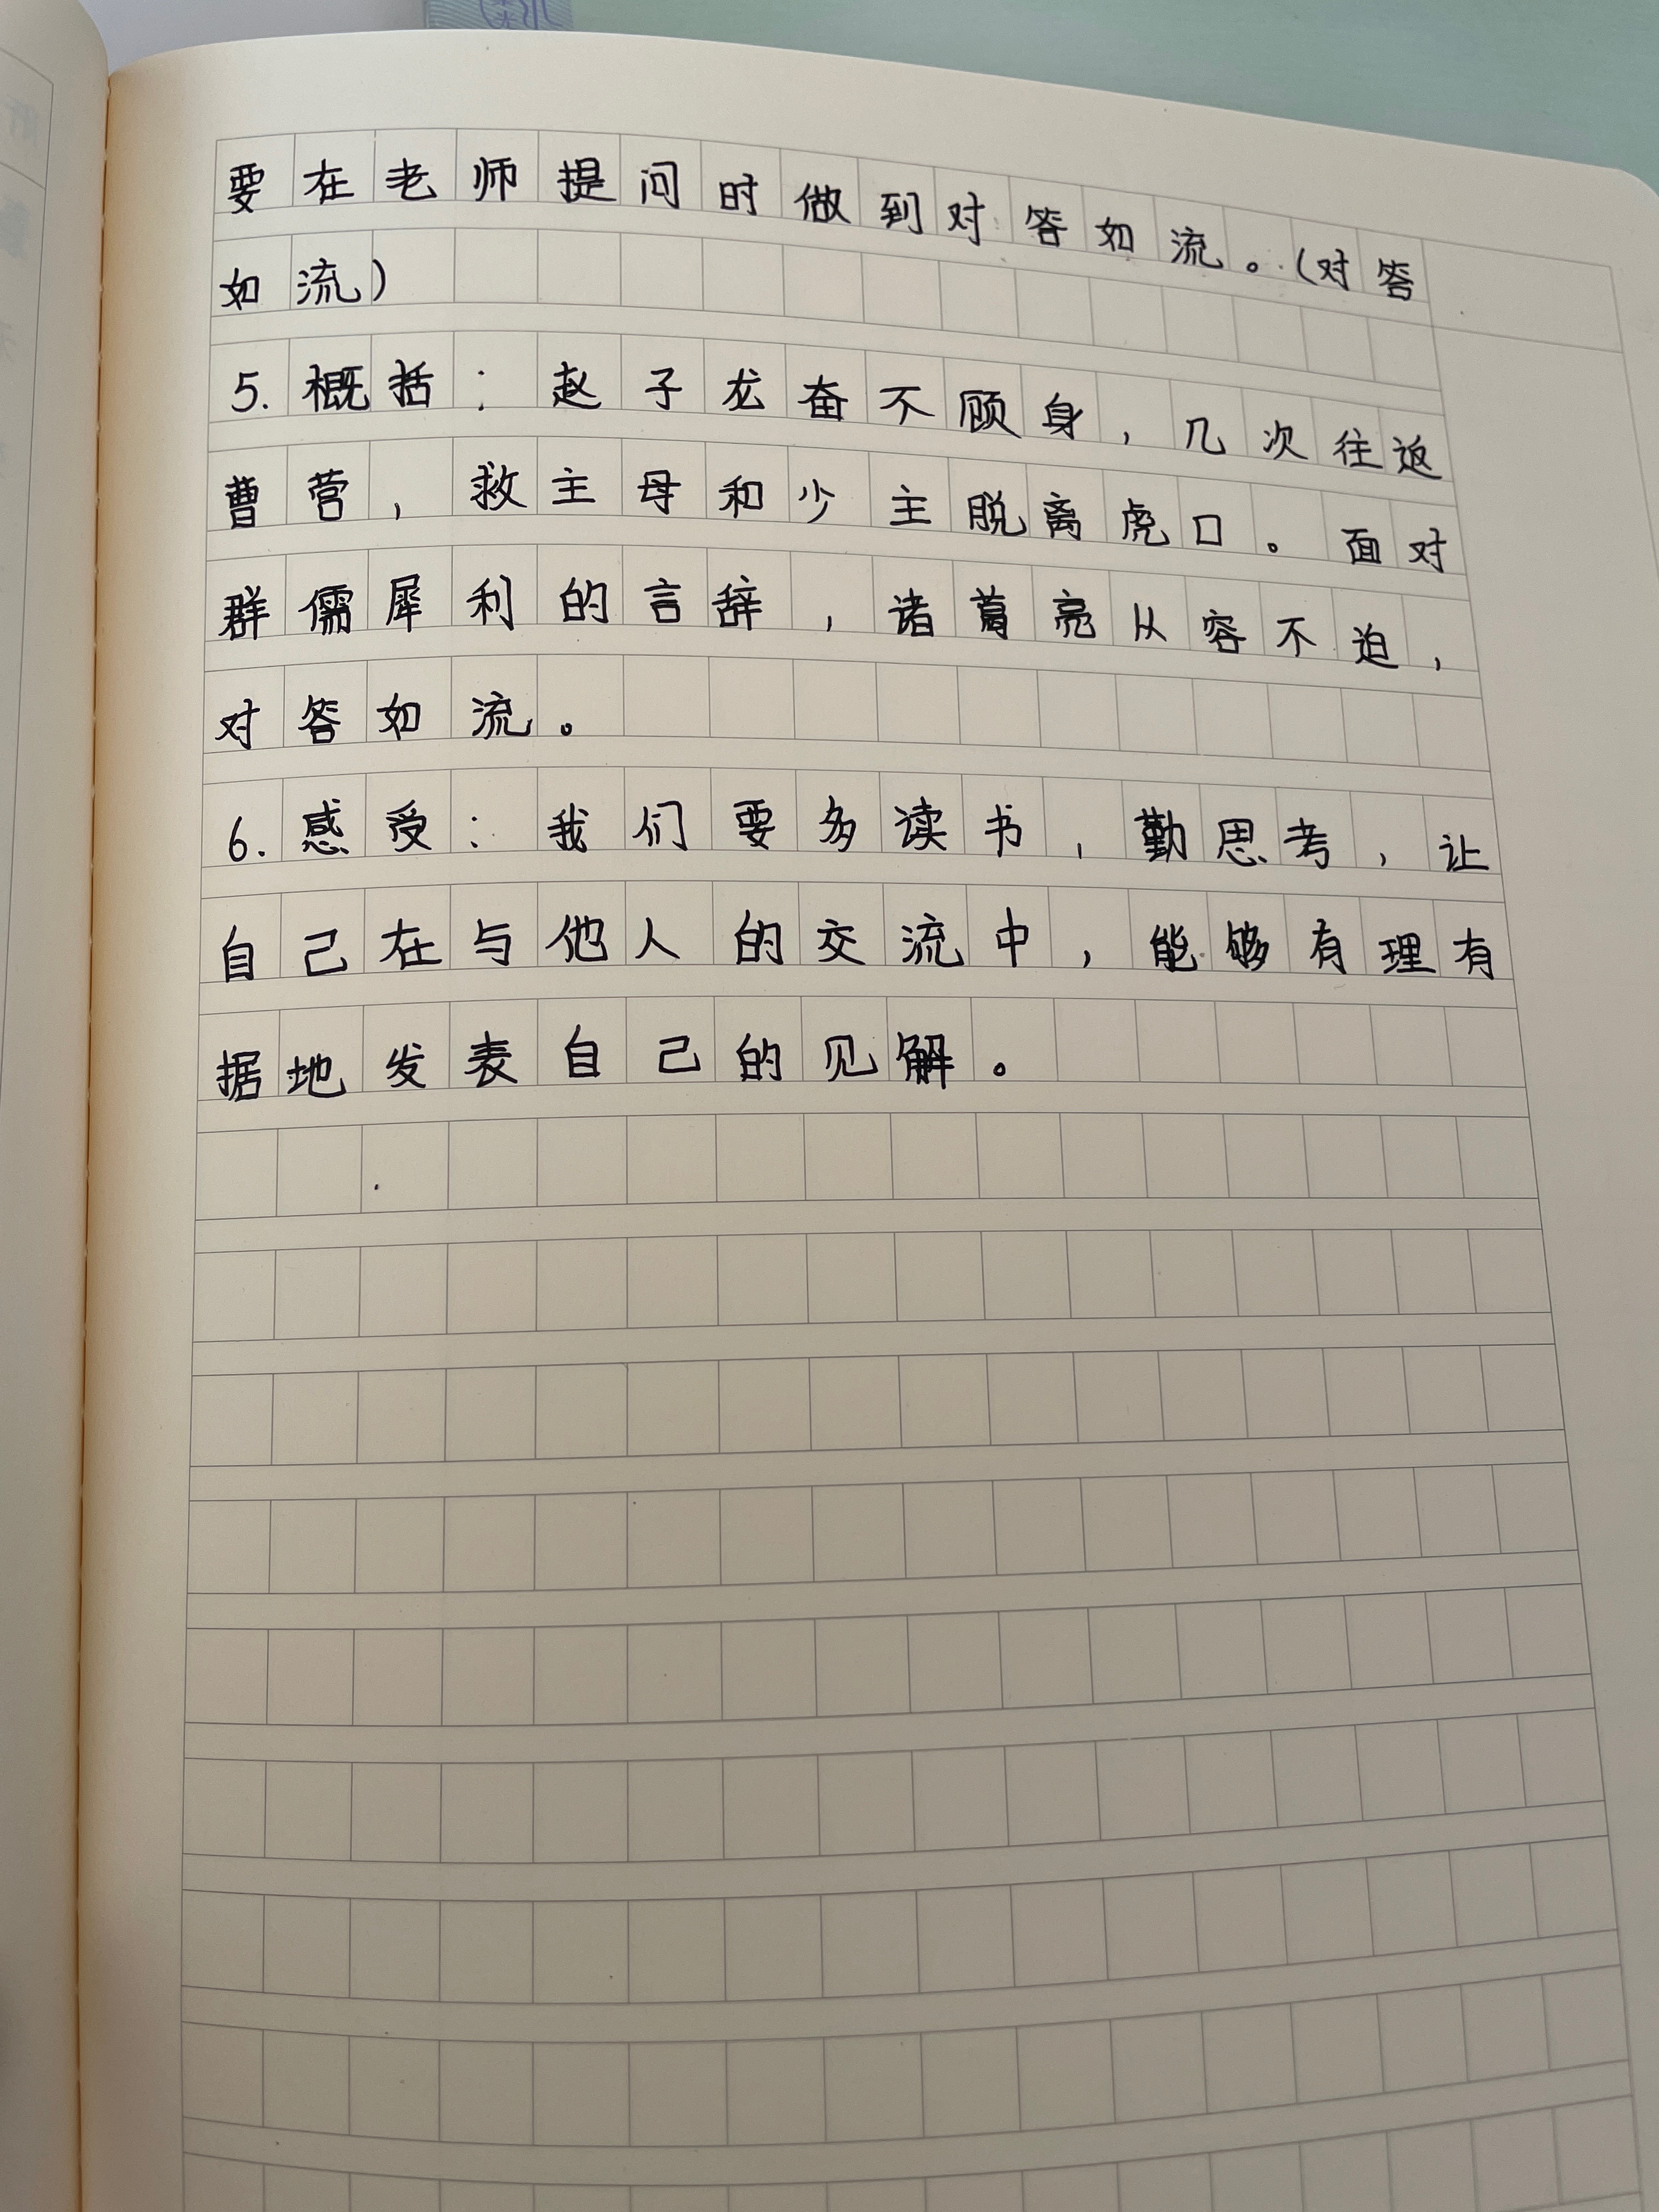 要在老师提问时做到对答如流。(对答
如流)
5.概括：赵子龙奋不顾身，几次往返
曹营，救主母和少主脱离虎口。面对
群儒犀利的言辞，诸葛亮从容不迫，
对答如流。
6.感受：我们要多读书，勤思考，让
自己在与他人的交流中，能够有理有
据地发表自己的见解。